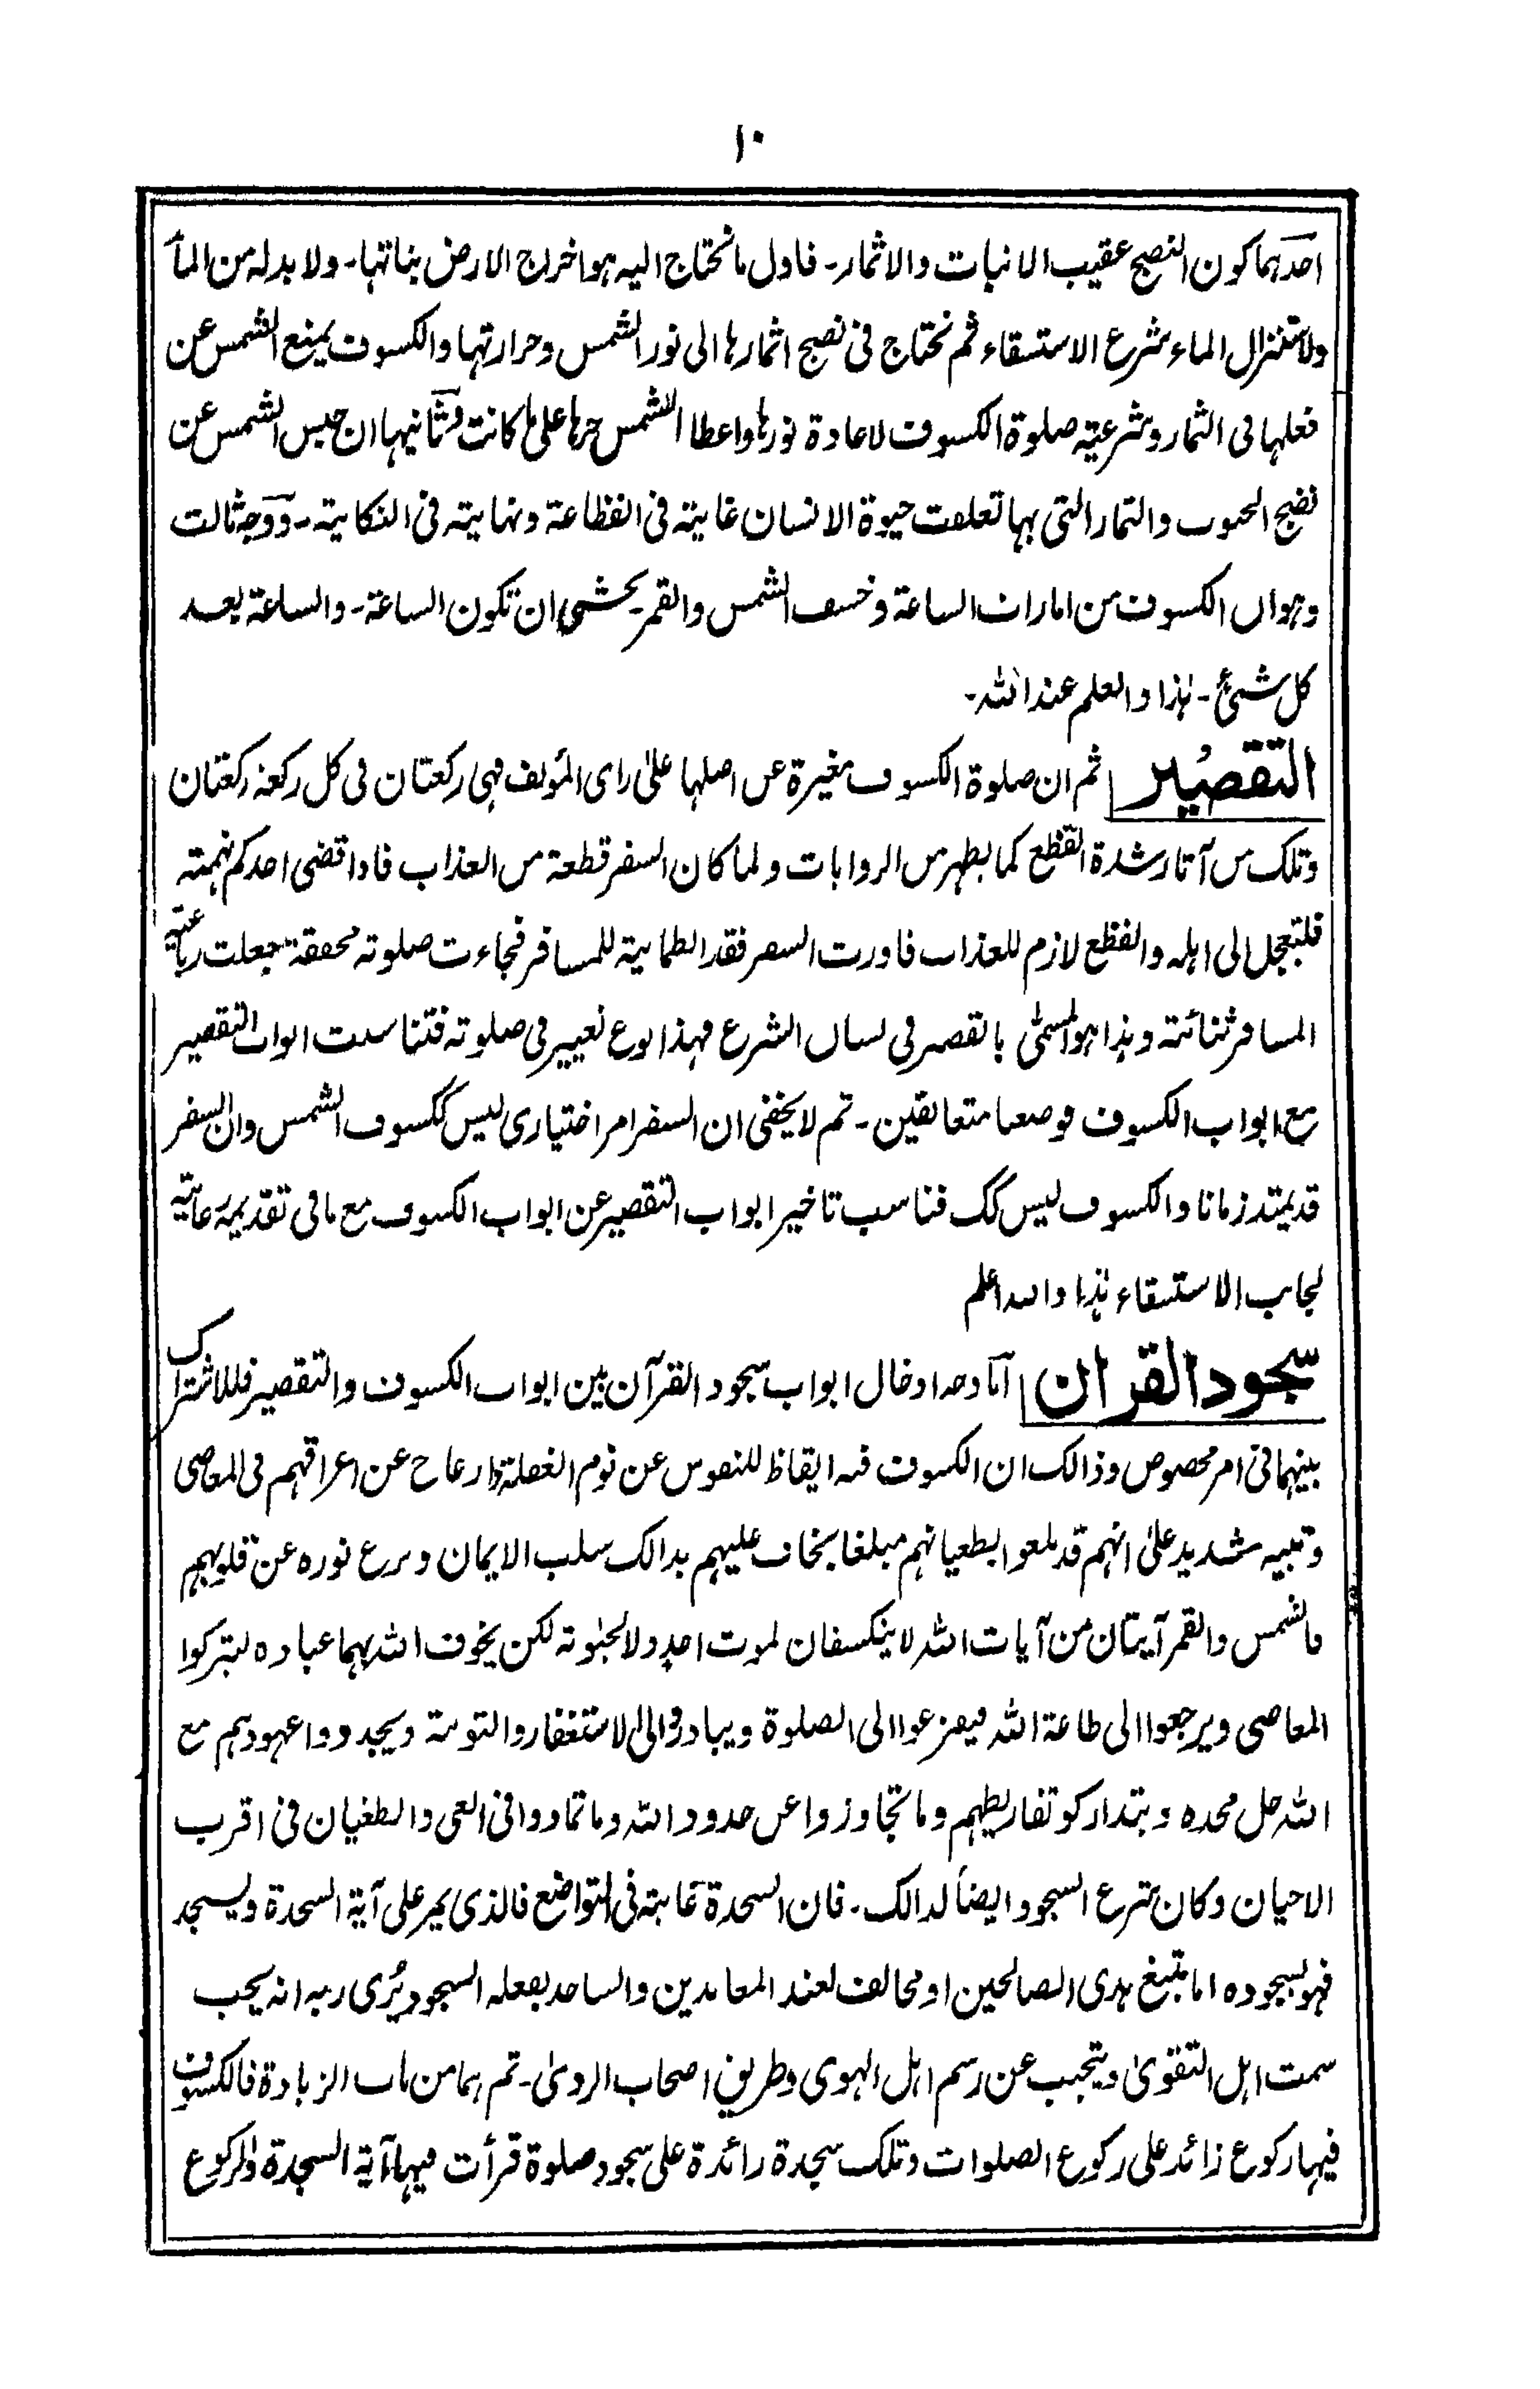 ١٠
احدهما كون النضج عقيب الانبات والاثمار۔ فاول ما نحتاج اليه هو اخراج الارض بناتها۔ ولا بد له من المأ
ولاستنزال الماء شرع الاستسقاء ثم نحتاج فى نضج اثمارها الى نور الشمس وحرارتها والكسوف يمنع الشمس عن
فعلها فى الثمار وشرعية صلوة الكسوف لاعادة نورها واعطا الشمس حرها على ما كانت وثانيها ان حبس الشمس عن
نضج الحبوب والثمار التى بها تعلقت حيوة الانسان غاية فى الفظاعة ونهاية فى النكاية۔ ووجه ثالث
وهو ان الكسوف من امارات الساعة وخسف الشمس والقمر يخشى ان تكون الساعة۔ والساعة بعد
كل شئ۔ هذا والعلم عند الله۔
التقصير ثم ان صلوة الكسوف مغيرة عن اصلها على راى المؤلف فهى ركعتان فى كل ركعة ركعتان
وتلك من آثار شدة الفظع كما يظهر من الروايات ولما كان السفر قطعة من العذاب فاذا قضى احدكم نهمته
فليتعجل الى اهله والفظع لازم للعذاب فاورث السفر فقد الطمانية للمسافر فجاءت صلوته مخففة جعلت رباعية
المسافر ثنائية وهذا هو المسمى بالقصر فى لسان الشرع فهذا نوع تغيير فى صلوته فتناسبت ابواب التقصير
مع ابواب الكسوف فوضعا متعانقين۔ ثم لا يخفى ان السفر امر اختيارى ليس ككسوف الشمس وان السفر
قد يمتد زمانا والكسوف ليس كك فناسب تاخير ابواب التقصير عن ابواب الكسوف مع ما فى تقديمه رعاية
لجانب الاستسقاء هذا والله اعلم
سجود القران اما وجه ادخال ابواب سجود القرآن بين ابواب الكسوف والتقصير فللاشتراك
بينهما فى امر مخصوص وذالك ان الكسوف فيه ايقاظ للنفوس عن نوم الغفلة وازعاج عن اغراقهم فى المعاصى
وتنبيه شديد على انهم قد بلغوا بطغيانهم مبلغا يخاف عليهم بذالك سلب الايمان ونزع نوره عن قلوبهم
فالشمس والقمر آيتان من آيات الله لا ينكسفان لموت احد ولا لحيوته لكن يخوف الله بهما عباده ليتركوا
المعاصى ويرجعوا الى طاعة الله فيفزعوا الى الصلوة ويبادروا الى الاستغفار والتوبة ويجددوا عهودهم مع
الله جل مجده ويتداركو تفاريطهم وما تجاوزوا عن حدود الله وما تمادوا فى الغى والطغيان فى اقرب
الاحيان وكان شرع السجود ايضاً لذالك۔ فان السجدة غاية فى التواضع فالذى يمر على آية السجدة ويسجد
فهو بسجوده اما متبع هدى الصالحين او مخالف لعند المعاندين والساجد بفعله السجود يُرى ربه انه يحب
سمت اهل التقوى ويتجنب عن رسم اهل الهوى وطريق اصحاب الردى۔ ثم هما من باب الزيادة فالكسوف
فيها ركوع زائد على ركوع الصلوات وتلك سجدة زائدة على سجود صلوة قرأت فيها آية السجدة والركوع